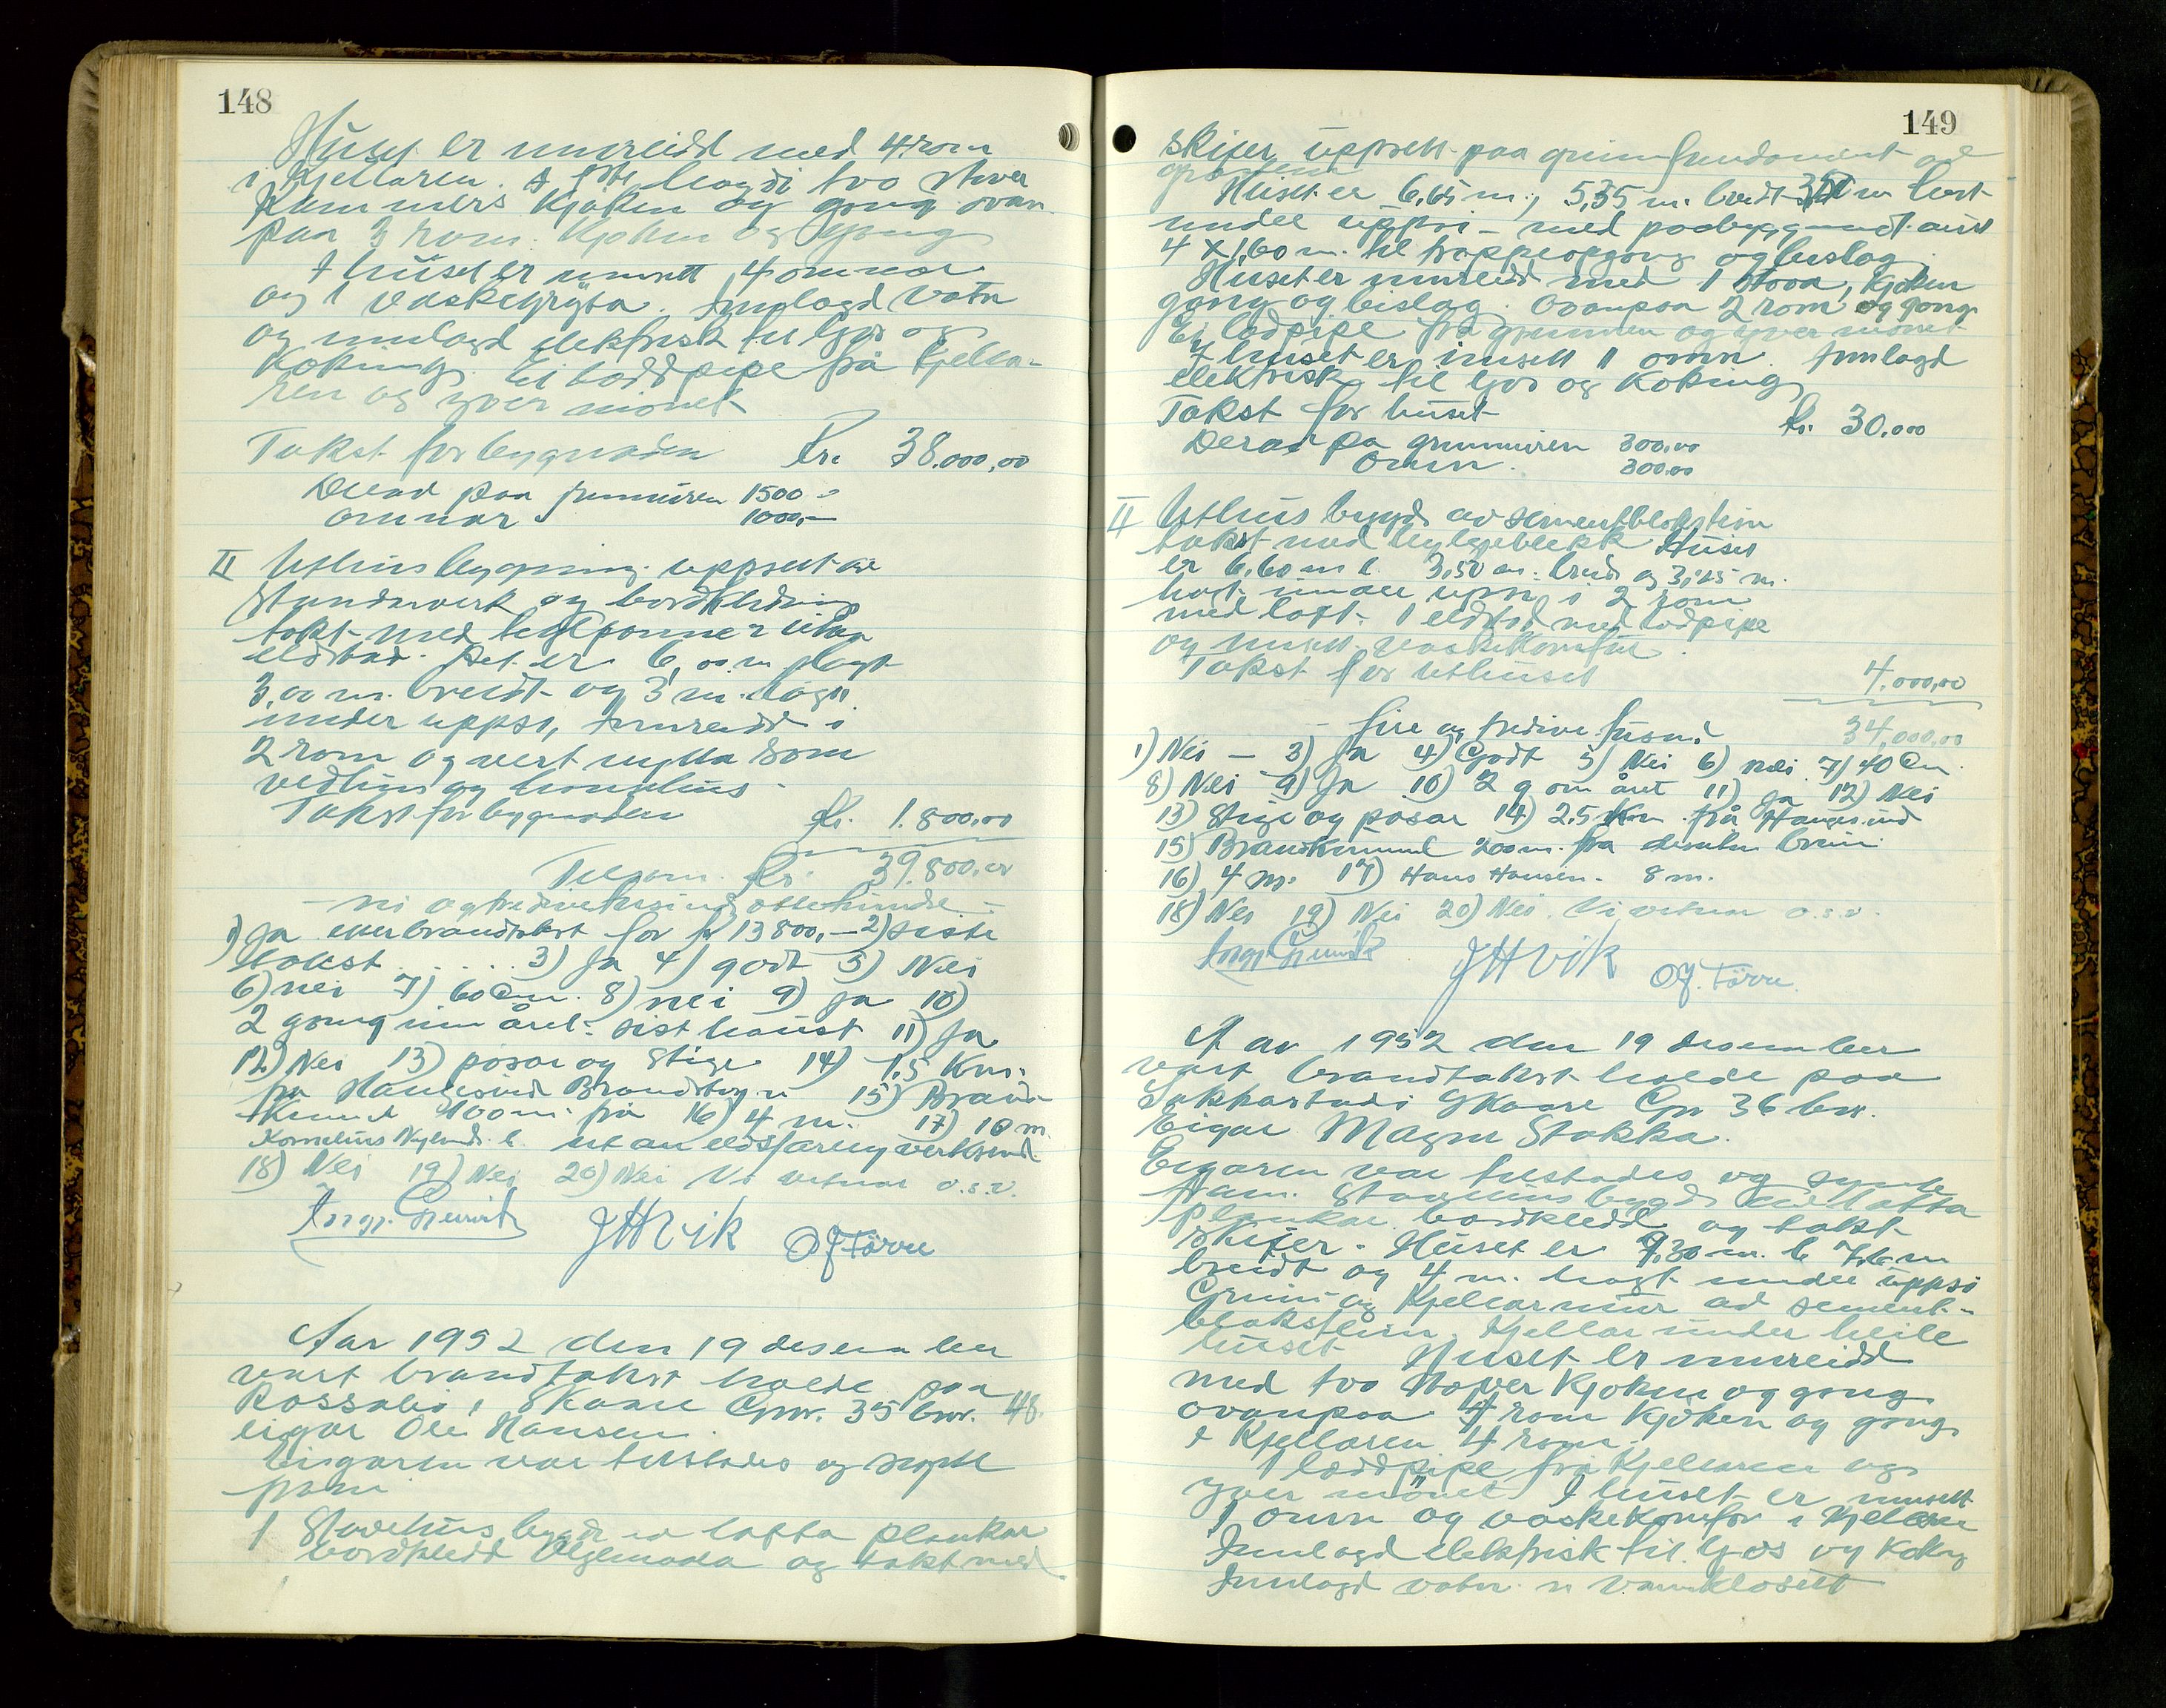 148
Huset er innreidd med 4 rom
i kjellaren. I 1ste høgdi tvo stover
kammers kjøken og gong ovan
paa 3 rom. Kjøken og gong
I huset er innsett 4 omnar
og 1 vaskegryta. Innlagd vatn
og innlagd elektrisk til ljos og
koking. Ei loddpipe frå kjella-
ren og yver mønet
Takst for bygnaden kr. 38.000,00
Derav paa grunnmuren 1500 -
omnar 1000,-
II Uthusbygning uppsett av
standarverk og bordkledning
tekt med teglpanner utan
eldstad. Det er 6,00 m langt
3,00 m. breidt og 3 m. høgt
under uppsi, Innreidd i
2 rom og vert nytta som
vedhus og hønsehus -
Takst for bygnaden kr. 1.800,00
Tilsam. kr. 39.800,00
- ni og tredivetusind ottehundre -
1) Ja etter brandtakst for kr 13800,- 2) siste
takst . . . . . 3) Ja 4) godt 5) Nei
6) nei 7) 60 Cm. 8) nei 9) ja 10)
2 gong um året. sist haust 11) Ja
12.) Nei 13) posar og stige 14) 1.5 Km.
frå Haugesund Brandstasjon 15) Brand-
kumme 400 m. frå 16) 4 m. 17) 10 m.
Kornelius Nylund. b. utan eldsfarleg verksemd
18) Nei 19) Nei 20) Nei Vi vitnar o.s.v.
JHVik OJ Førre
Aar 1952 den 19 desember
vart brandtakst halde paa
Rossabø, Skaare Gnr. 35 bnr. 48.
eigar Ole Hansen.
Eigaren var tilstades og synte
fram
1 Stovehus bygdt av lafta plankar
bordkledd oljemaala og tekt med
149
skifer uppsett paa grunnfundament av
graastein
Huset er 6,65 m., 5,35 m. breidt 3,50 m høgt
under uppsi - med paabygg mot aust
4 x 1,60 m. til trappeopgong og bislag.
Huset er innreidd med 1 stova, kjøken
gong og bislag. Ovanpaa 2 rom og gong
Ei lodpipe frå grunnen og yver mønet
I huset er innsett 1 omn. Innlagd
elektrisk til ljos og koking
Takst for huset kr. 30.000
Derav på grunnmuren 300,00
Omn. 300,00
II Uthus bygd av sementblokstein
tekt med bylgjeblekk Huset
er 6,60 m l. 3,50 m. breidt og 3,25 m.
høgt under uppsi i 2 rom
med loft. 1 eldstad med lodpipe
og innsett vaskekomfur.
Takst for uthuset 4.000,00
- fire og tredive tusund 34,000,00
1) Nei - 3) Ja 4) Godt 5) Nei 6) nei 7) 40 Cm.
8) Nei 9) Ja 10) 2 g om året 11) ja 12) Nei
13) Stige og posar 14) 2.5 Km. frå Haugesund
15) Brandkumme 200 m. frå
16) 4 m. 17) Hans Hansen. 8 m.
18) Nei 19) Nei 20) Nei. Vi vitnar o.s.v.
JHVik OJ. Førre.
Aar 1952 den 19 desember
vart brandtakst halde paa
Skaare Gnr 36 bnr.
Eigar Magne Stakka.
Eigaren var tilstades og synte
fram. Stovehus bygdt av lafta
plankar bordkledd og tekt
skifer. Huset er 9,30 m. l
breidt og 4 m. høgt under uppsi
Grunn- og kjellarmur av sement-
blokstein. Kjellar under heile
huset Huset er innreidd
med tvo stover kjøken og gong
ovanpaa 4 rom kjøken og gong
I kjellaren 4 rom.
1 loddpipe frå kjellaren og
yver mønet. I huset er innsett
1 omn og vaskekomfyr i kjellaren
Innlagd elektrisk til ljos og koking
Innlagd vatn. Vannklosett